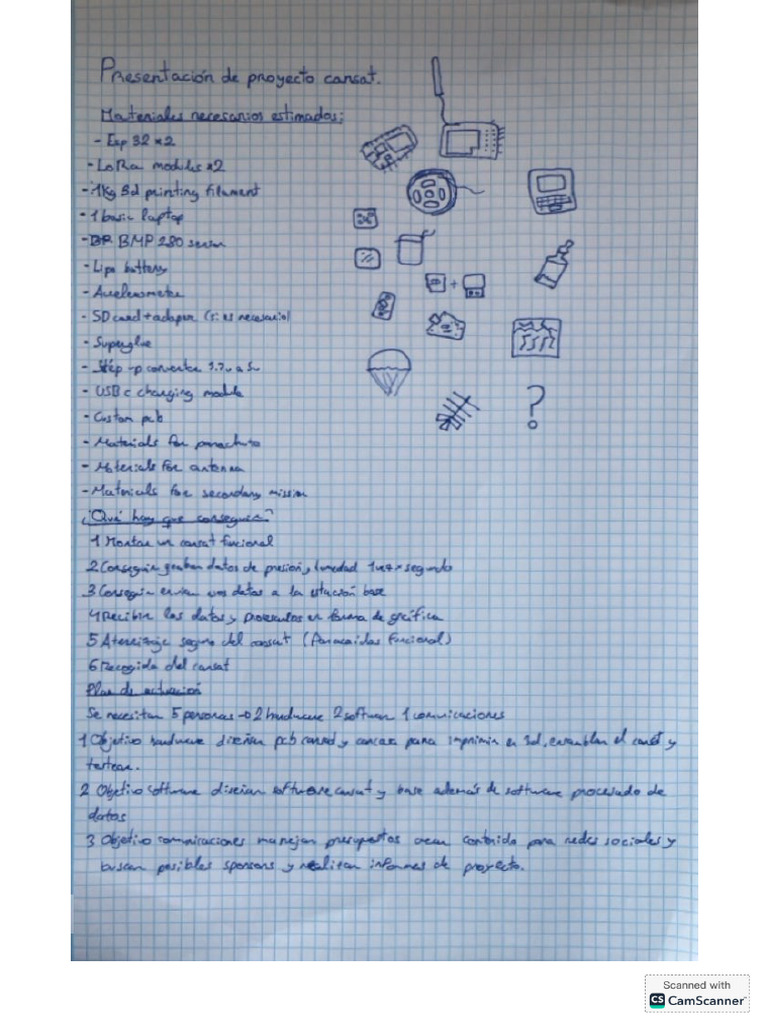 Presentación de proyecto cansat.
Materiales necesarios estimados:
- Esp 32 x2
- LoRa modules x2
- 1Kg 3d printing filament
- 1 basic laptop
- BMP 280 sensor
- Lipo battery
- Accelerometer
- SD card + adapter (si es necesario)
- Superglue
- Step up converter 3.7v a 5v
- USB c charging module
- Custom pcb
- Materials for parachute
- Materials for antenna
- Materials for secondary mission
¿Qué hay que conseguir?
1 Montar un cansat funcional
2 Conseguir grabar datos de presión y humedad 1 vez x segundo
3 Conseguir enviar esos datos a la estación base
4 Recibir los datos y procesarlos en forma de gráfica
5 Aterrizaje seguro del cansat (Paracaidas funcional)
6 Recogida del cansat
Plan de actuación
Se necesitan 5 personas → 2 hardware 2 software 1 comunicaciones
1 Objetivo hardware diseñar pcb cansat y carcasa para imprimir en 3d, ensamblar el cansat y
testear.
2 Objetivo software diseñar software cansat y base además de software procesado de
datos
3 Objetivo comunicaciones manejar presupuestos crear contenido para redes sociales y
buscar posibles sponsors y realizar informes de proyecto.
?
Scanned with
CS CamScanner